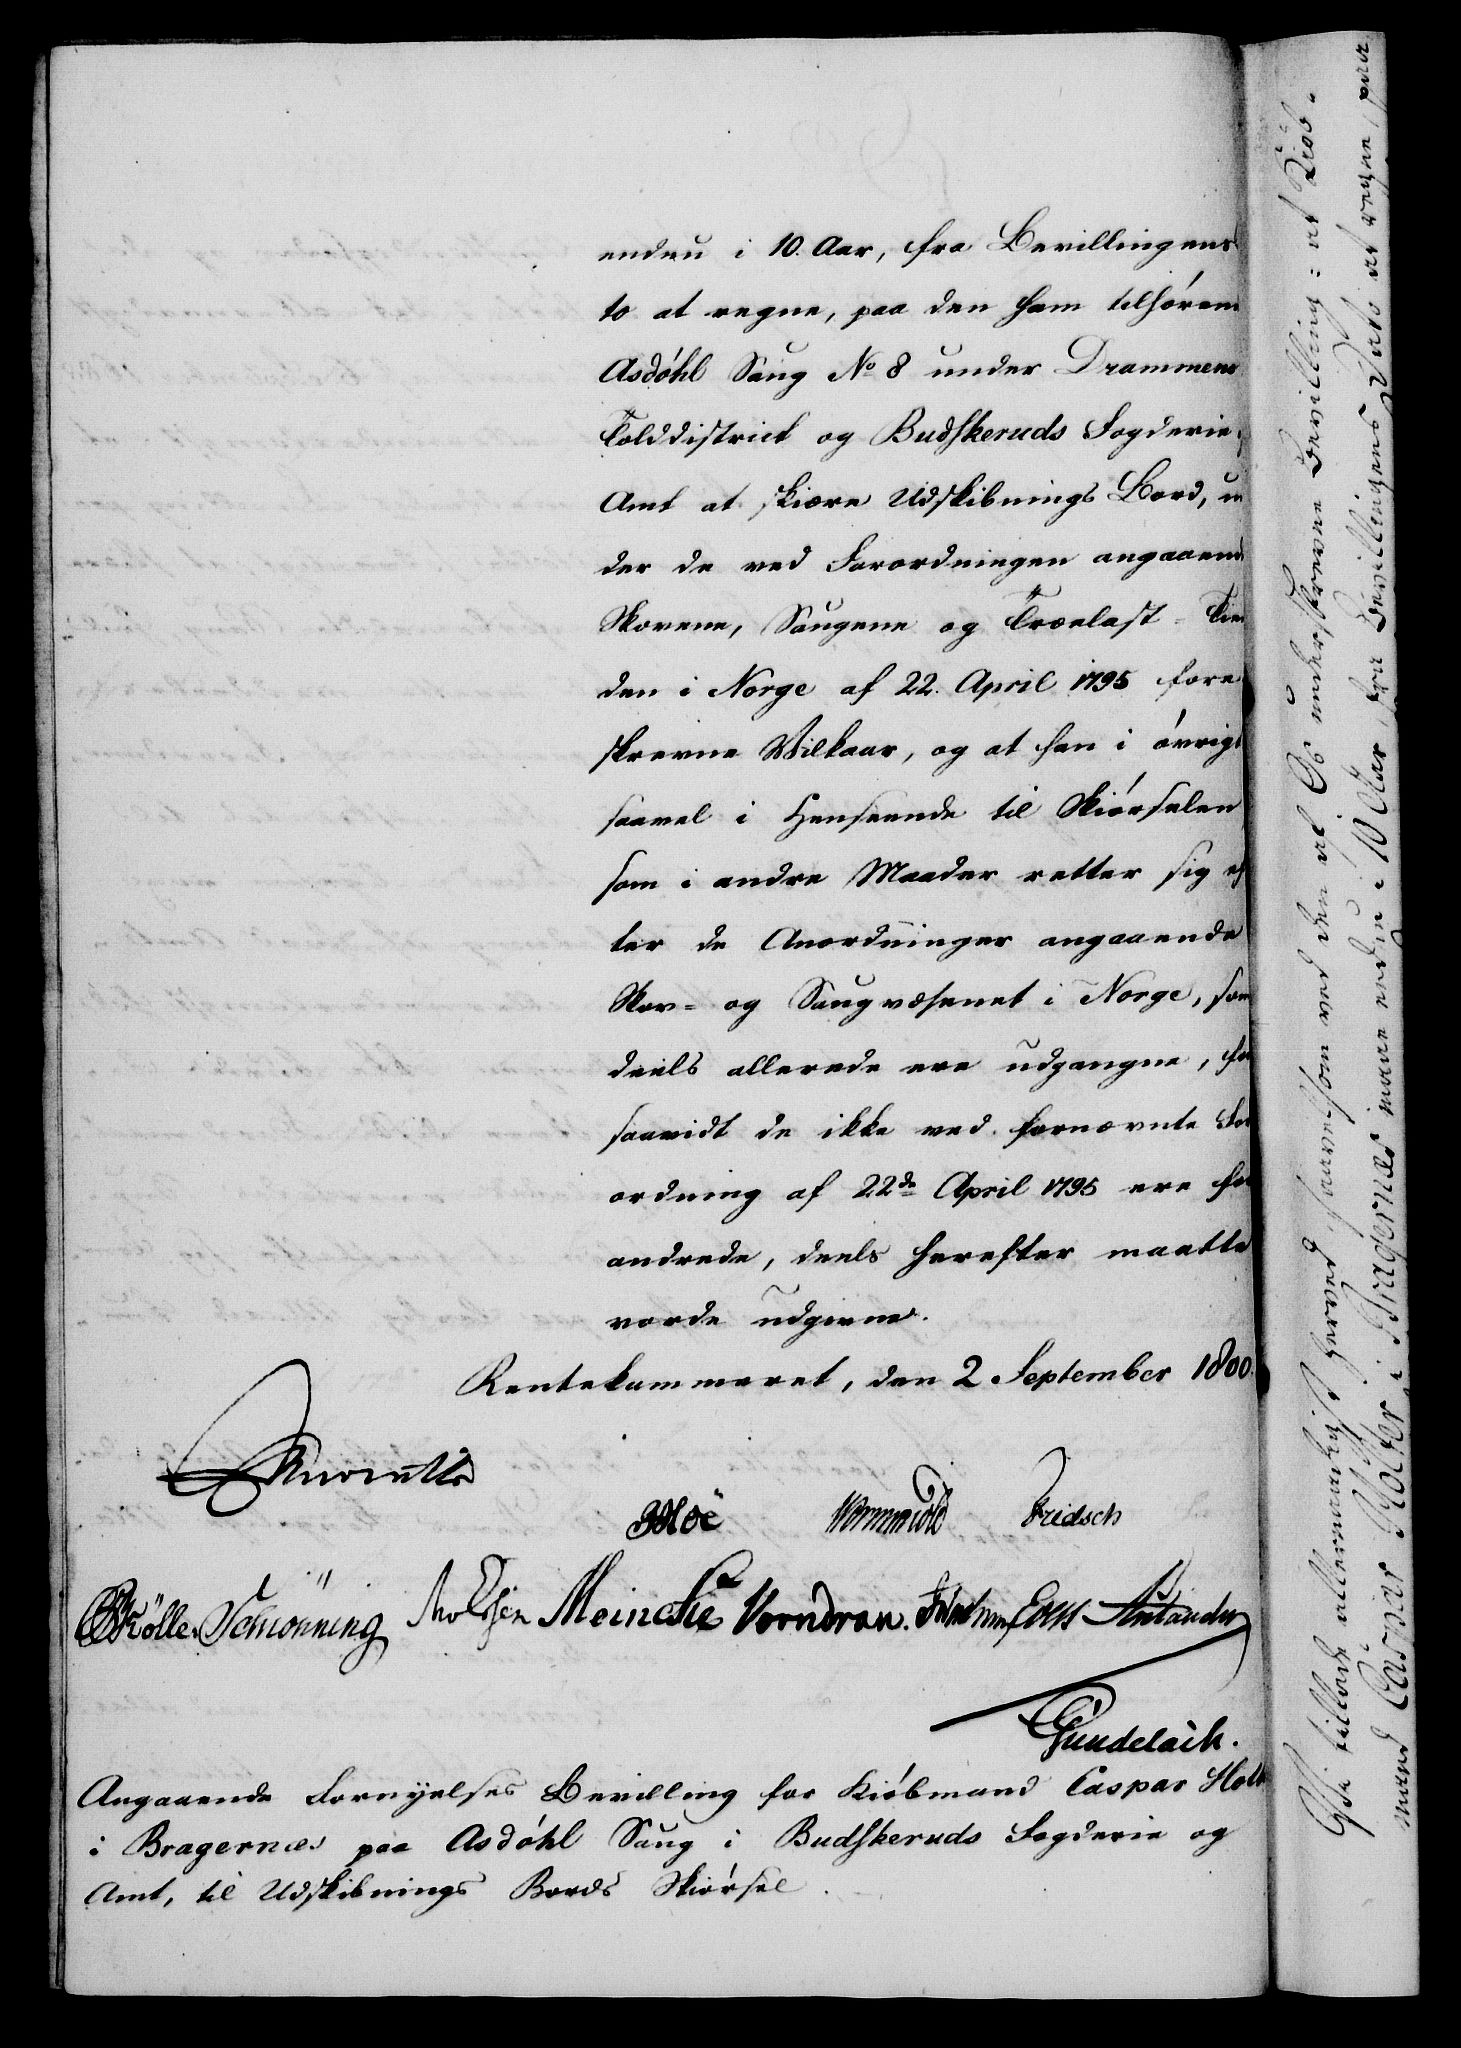 endnu i 10. Aar, fra Bevillingens
to at regne, paa den ham tilhøren
Asdøhl Saug No 8 under Drammens
Tolddistrict og Budskeruds Fogderie
Amt at skiære Udskibnings Bord, un
der de ved Forordningen angaaend
Skovene, Saugene og Trælast-Tien
den i Norge af 22. April 1795 fore
skrevne Vilkaar, og at han i øvrigt
saavel i Henseende til Skiørselen
som i andre Maader retter sig ef
ter de Anordninger angaaende
Skov- og Saugvæsenet i Norge, som
deels allerede ere udgangne, for
saavidt de ikke ved fornævnte For
ordning af 22de April 1795 ere for
andrede, deels herefter maatte
vorde udgivne.
Rentekammeret, den 2 September 1800.
Wormskiold Fridsch
Schiønning Meincke Vorndran.
Gundelach.
Angaaende Fornyelses Bevilling for Kiøbmand Caspar Holt
i Bragernæs paa Asdøhl Saug i Budskeruds Fogderie og
Amt, til Udskibnings Bords Skiørsel.
Vi tillade allernaadigst herved, saavelsom ved den af Os underskrevne Bevilling: at Kiøb-
mand Caspar Holter i Bragernæs maae endnu i 10 Aar, fra Bevillingens Dato at regne, paa